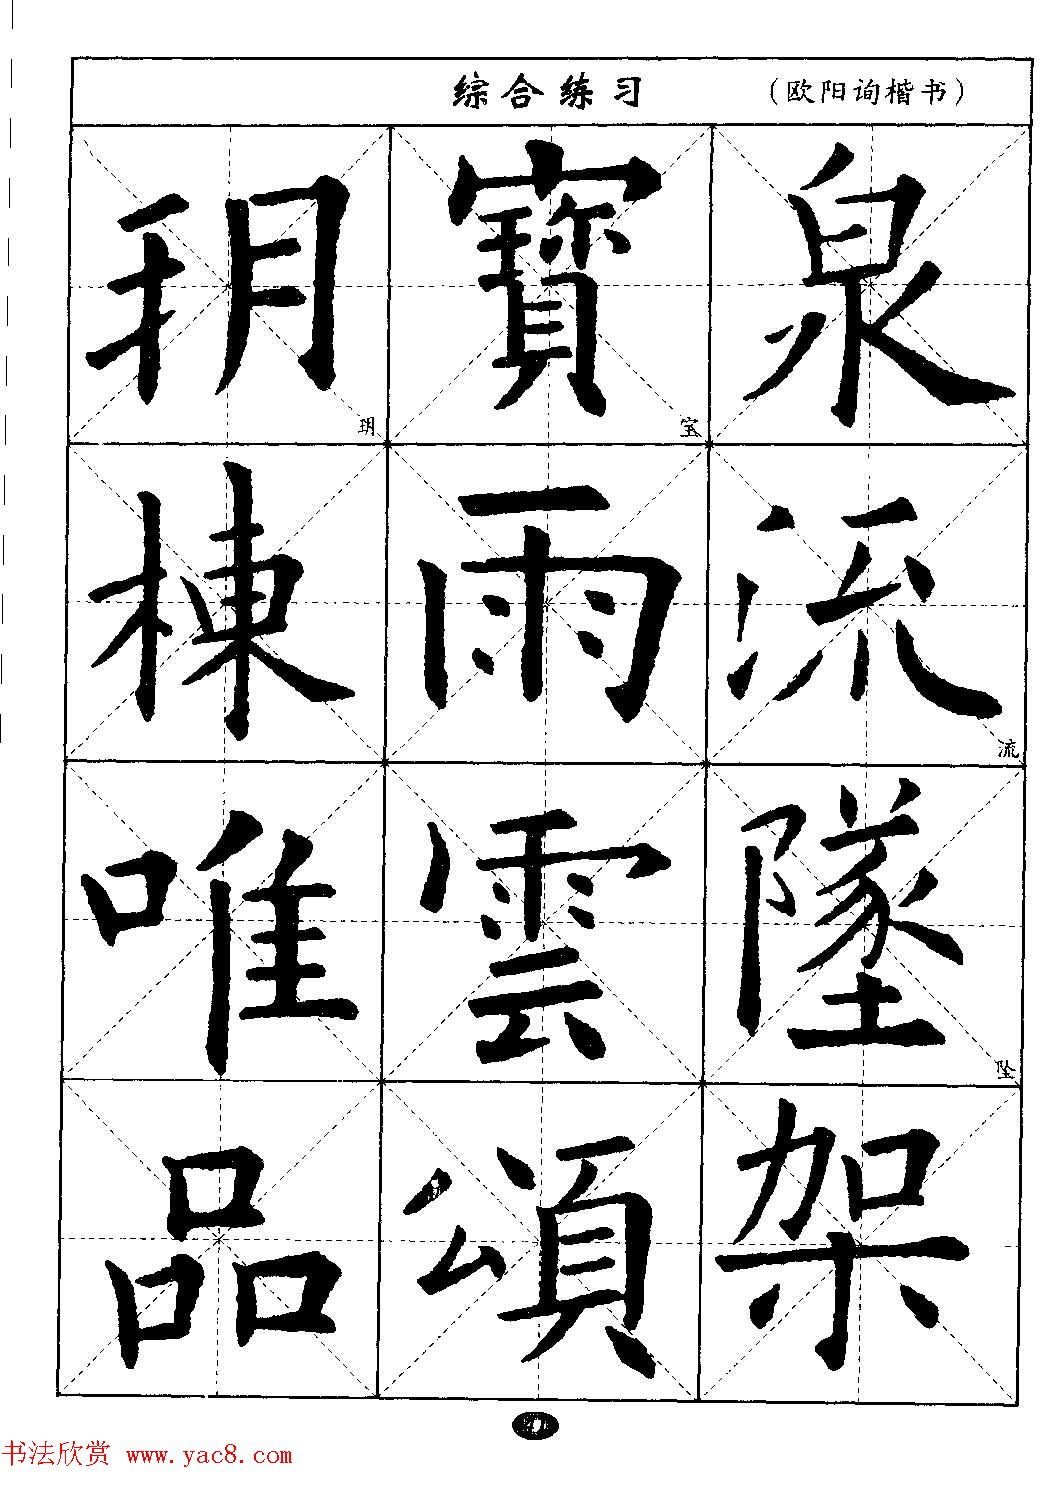 综合练习 （欧阳询楷书）
玥 寶 泉
玥 宝
棟 雨 流
流
唯 雲 墜
坠
品 頌 架
书法欣赏 www.yac8.com